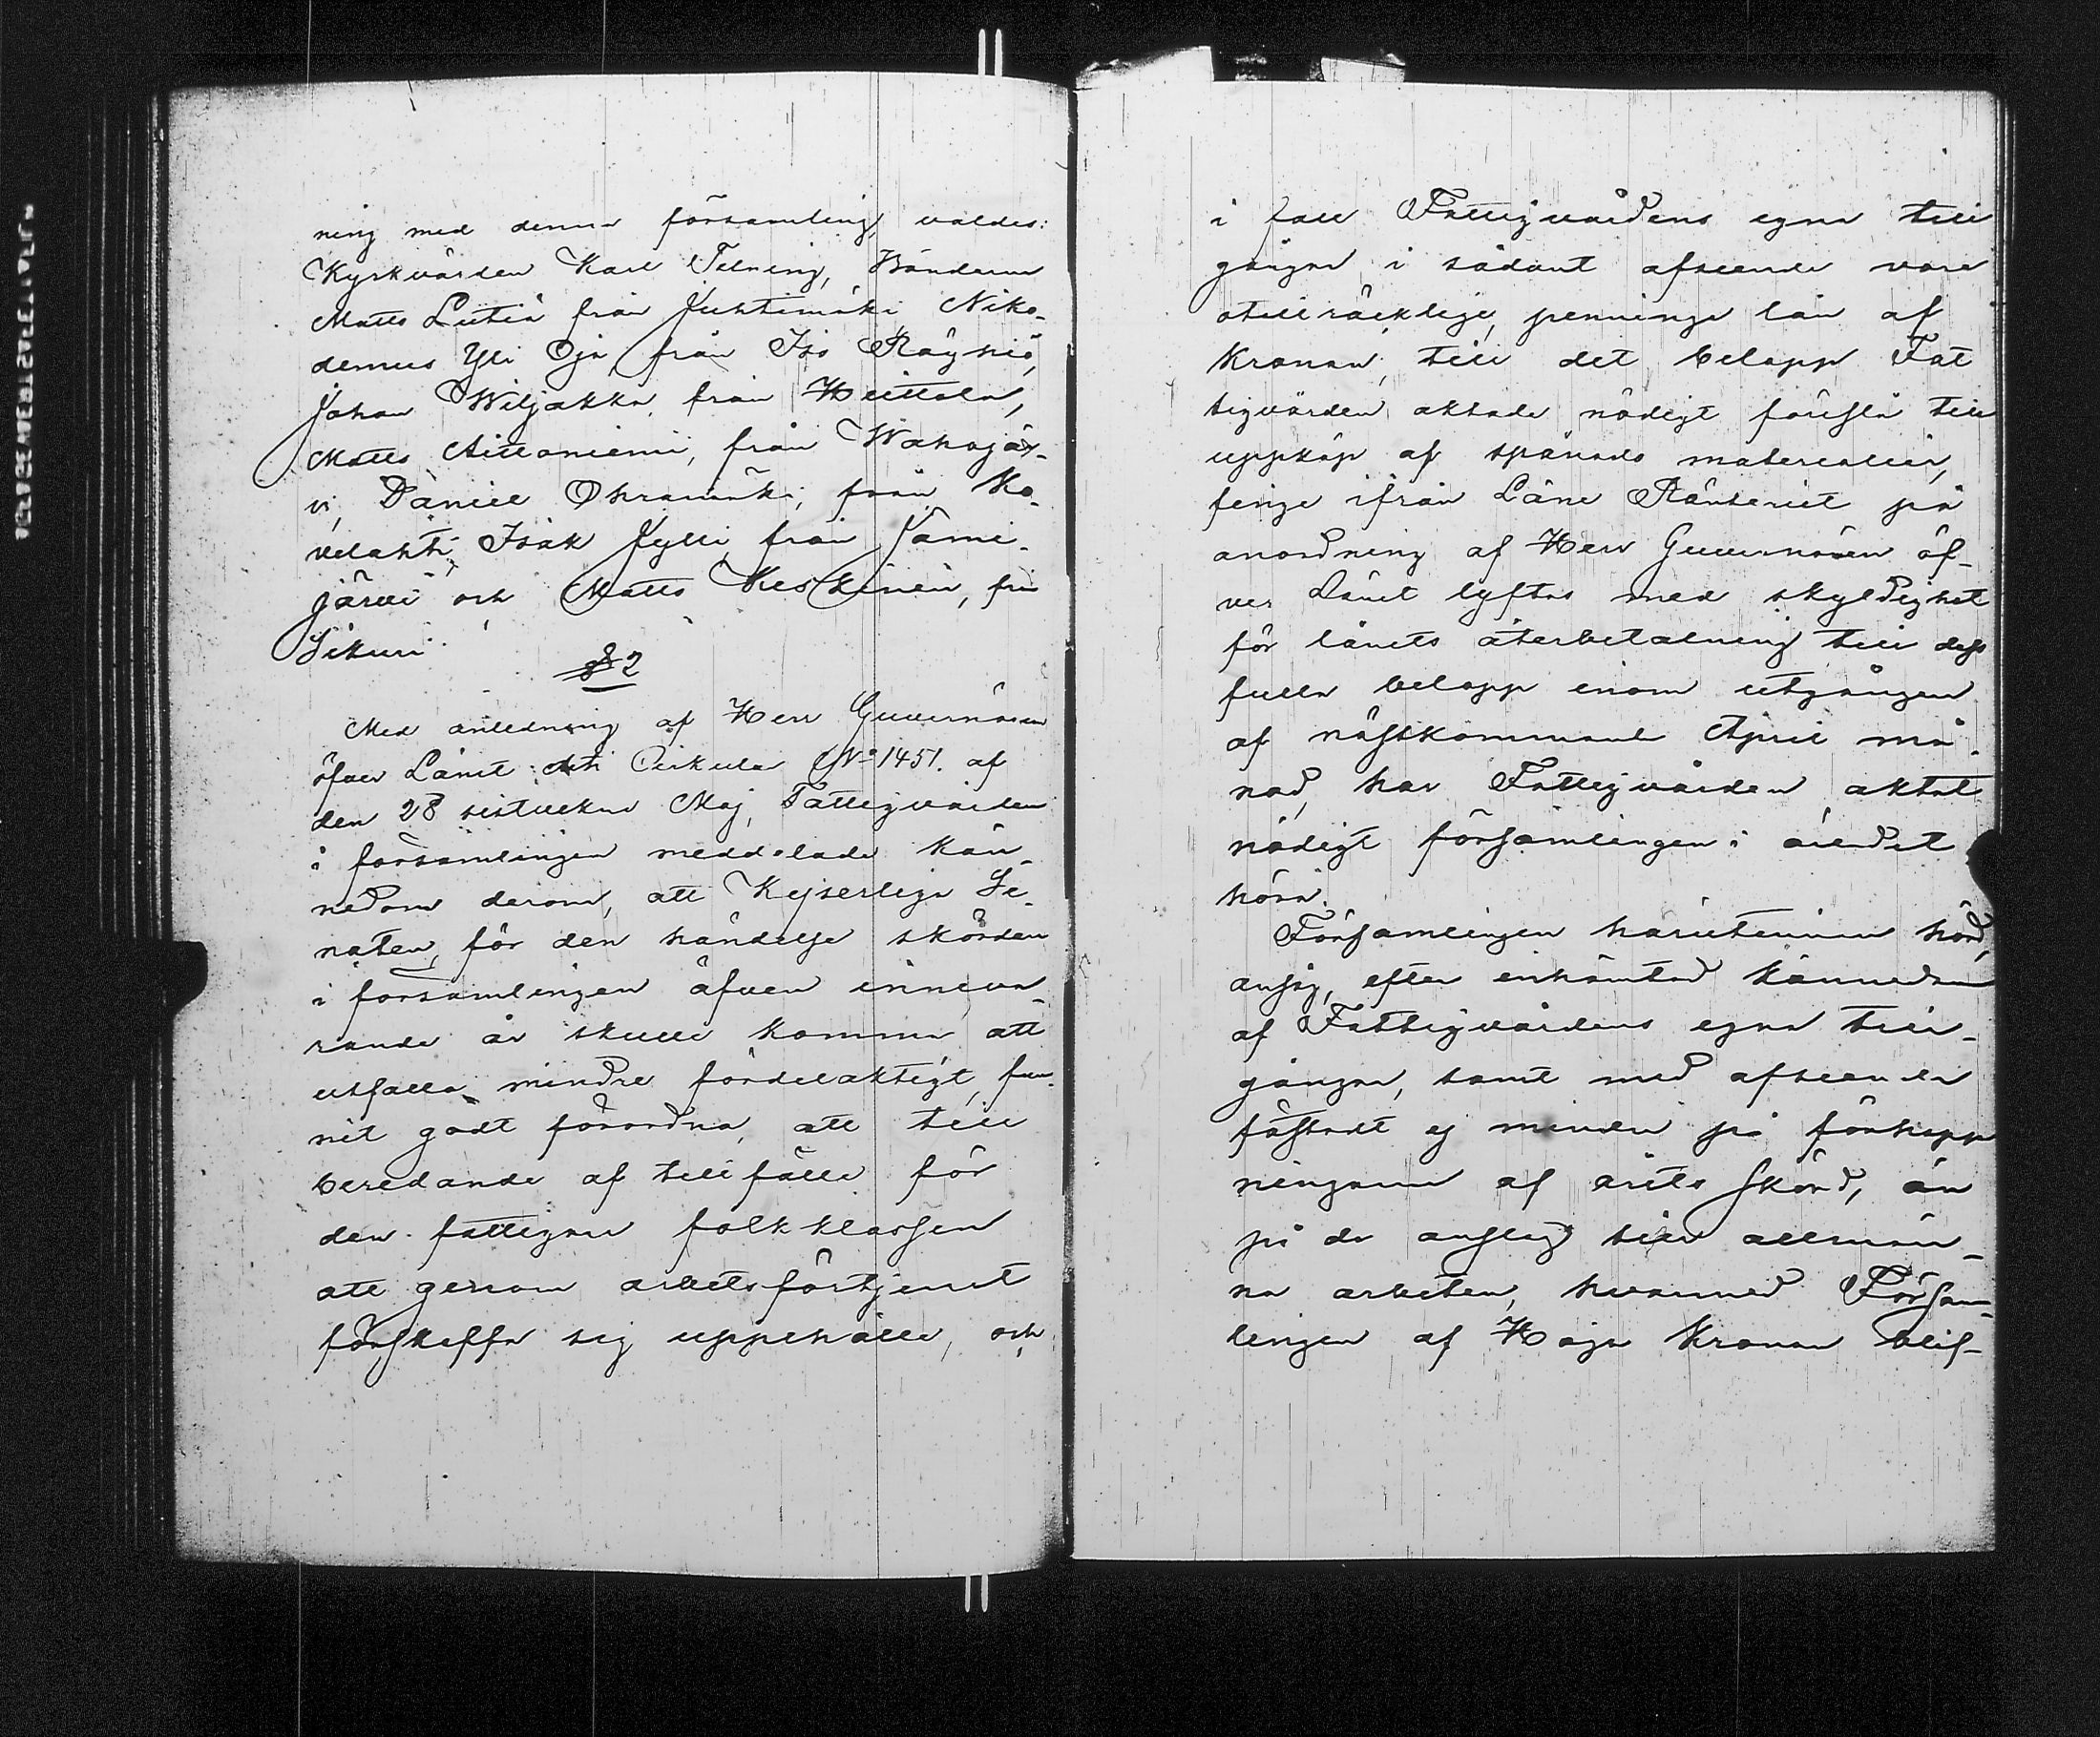 ning med denna församling, valdes:
Kyrkvärden Karl Telning, Bönderna
Matts Lutiä från Juhtimäki Niko-
demus Yli Oja, från Iso Röyhiö,
Johan Wiljakka från Heittola,
Matts Aittoniemi, från Wahojär-
vi, Daniel Ohranmäki, från Ko-
velahti, Isak Jylli, från Jämi-
järvi och Matts Keskinen, från
Sikuri
§ 2
Med anledning af Herr Guvernören
öfver Länet Cirkulär No 1451. af
den 28 sistvekne Maj, Fattigvården
i församlingen meddelade kän-
nedom derom, att Kejserliga Se-
naten, för den händelse skörden
i församlingen äfven inneva-
rande år skulle komma att
utfalla mindre fördelaktigt, fun-
nit godt förordna, att till
beredande af tillfälle för
den fattigare folkklassen
att genom arbetsförtjenst
förskaffa sig uppehälle, och
i fall Fattigvårdens egna till
gångar i sådant afseende vore
otillräcklige, penninge lån af
Kronan, till det belopp Fat
tigvården aktade nödigt föreslå till
uppköp af spånads materialier,
finge ifrån Läne Ränteriet på
anordning af Herr Guvernören öf-
ver Länet lyftas med skyldighet
för lånets återbetalning till dess
fulla belopp inom utgången
af nästkommande April må-
nad, har Fattigvården aktat
nödigt församlingen i ärendet
höra.
Församlingen häruti hörd,
ansåg, efter inhämtad kännedom
af Fattigvårdens egna till-
gångar, samt med afseende
fästadt ej mindre på förhopp
ningarne af årets skörd, än
på de anslag till allmän-
na arbeten, hvarmed Försam-
lingen af Höga Kronan blif-